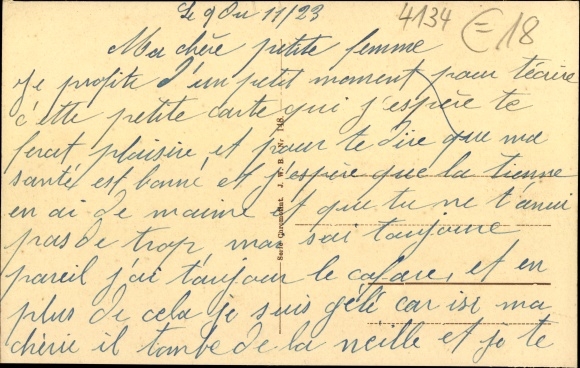 Le 9 Du 11/23
4134 E 18
Ma chère petite femme
Je profite d'un petit moment pour técrire
c'ette petite carte qui j'espère te
ferat plaisire, et pour te dire que ma
santé est bonné et j'espère que la tienne
en ai de maime et que tu ne t'anui
pas de trop, mai sai toujoure
pareil j'ai toujour le cafare, et en
plus de cela je suis gélé car isi ma
chérie il tombe de la neille et je te
Serie Coremonat. J. W. B. Nr. 118.